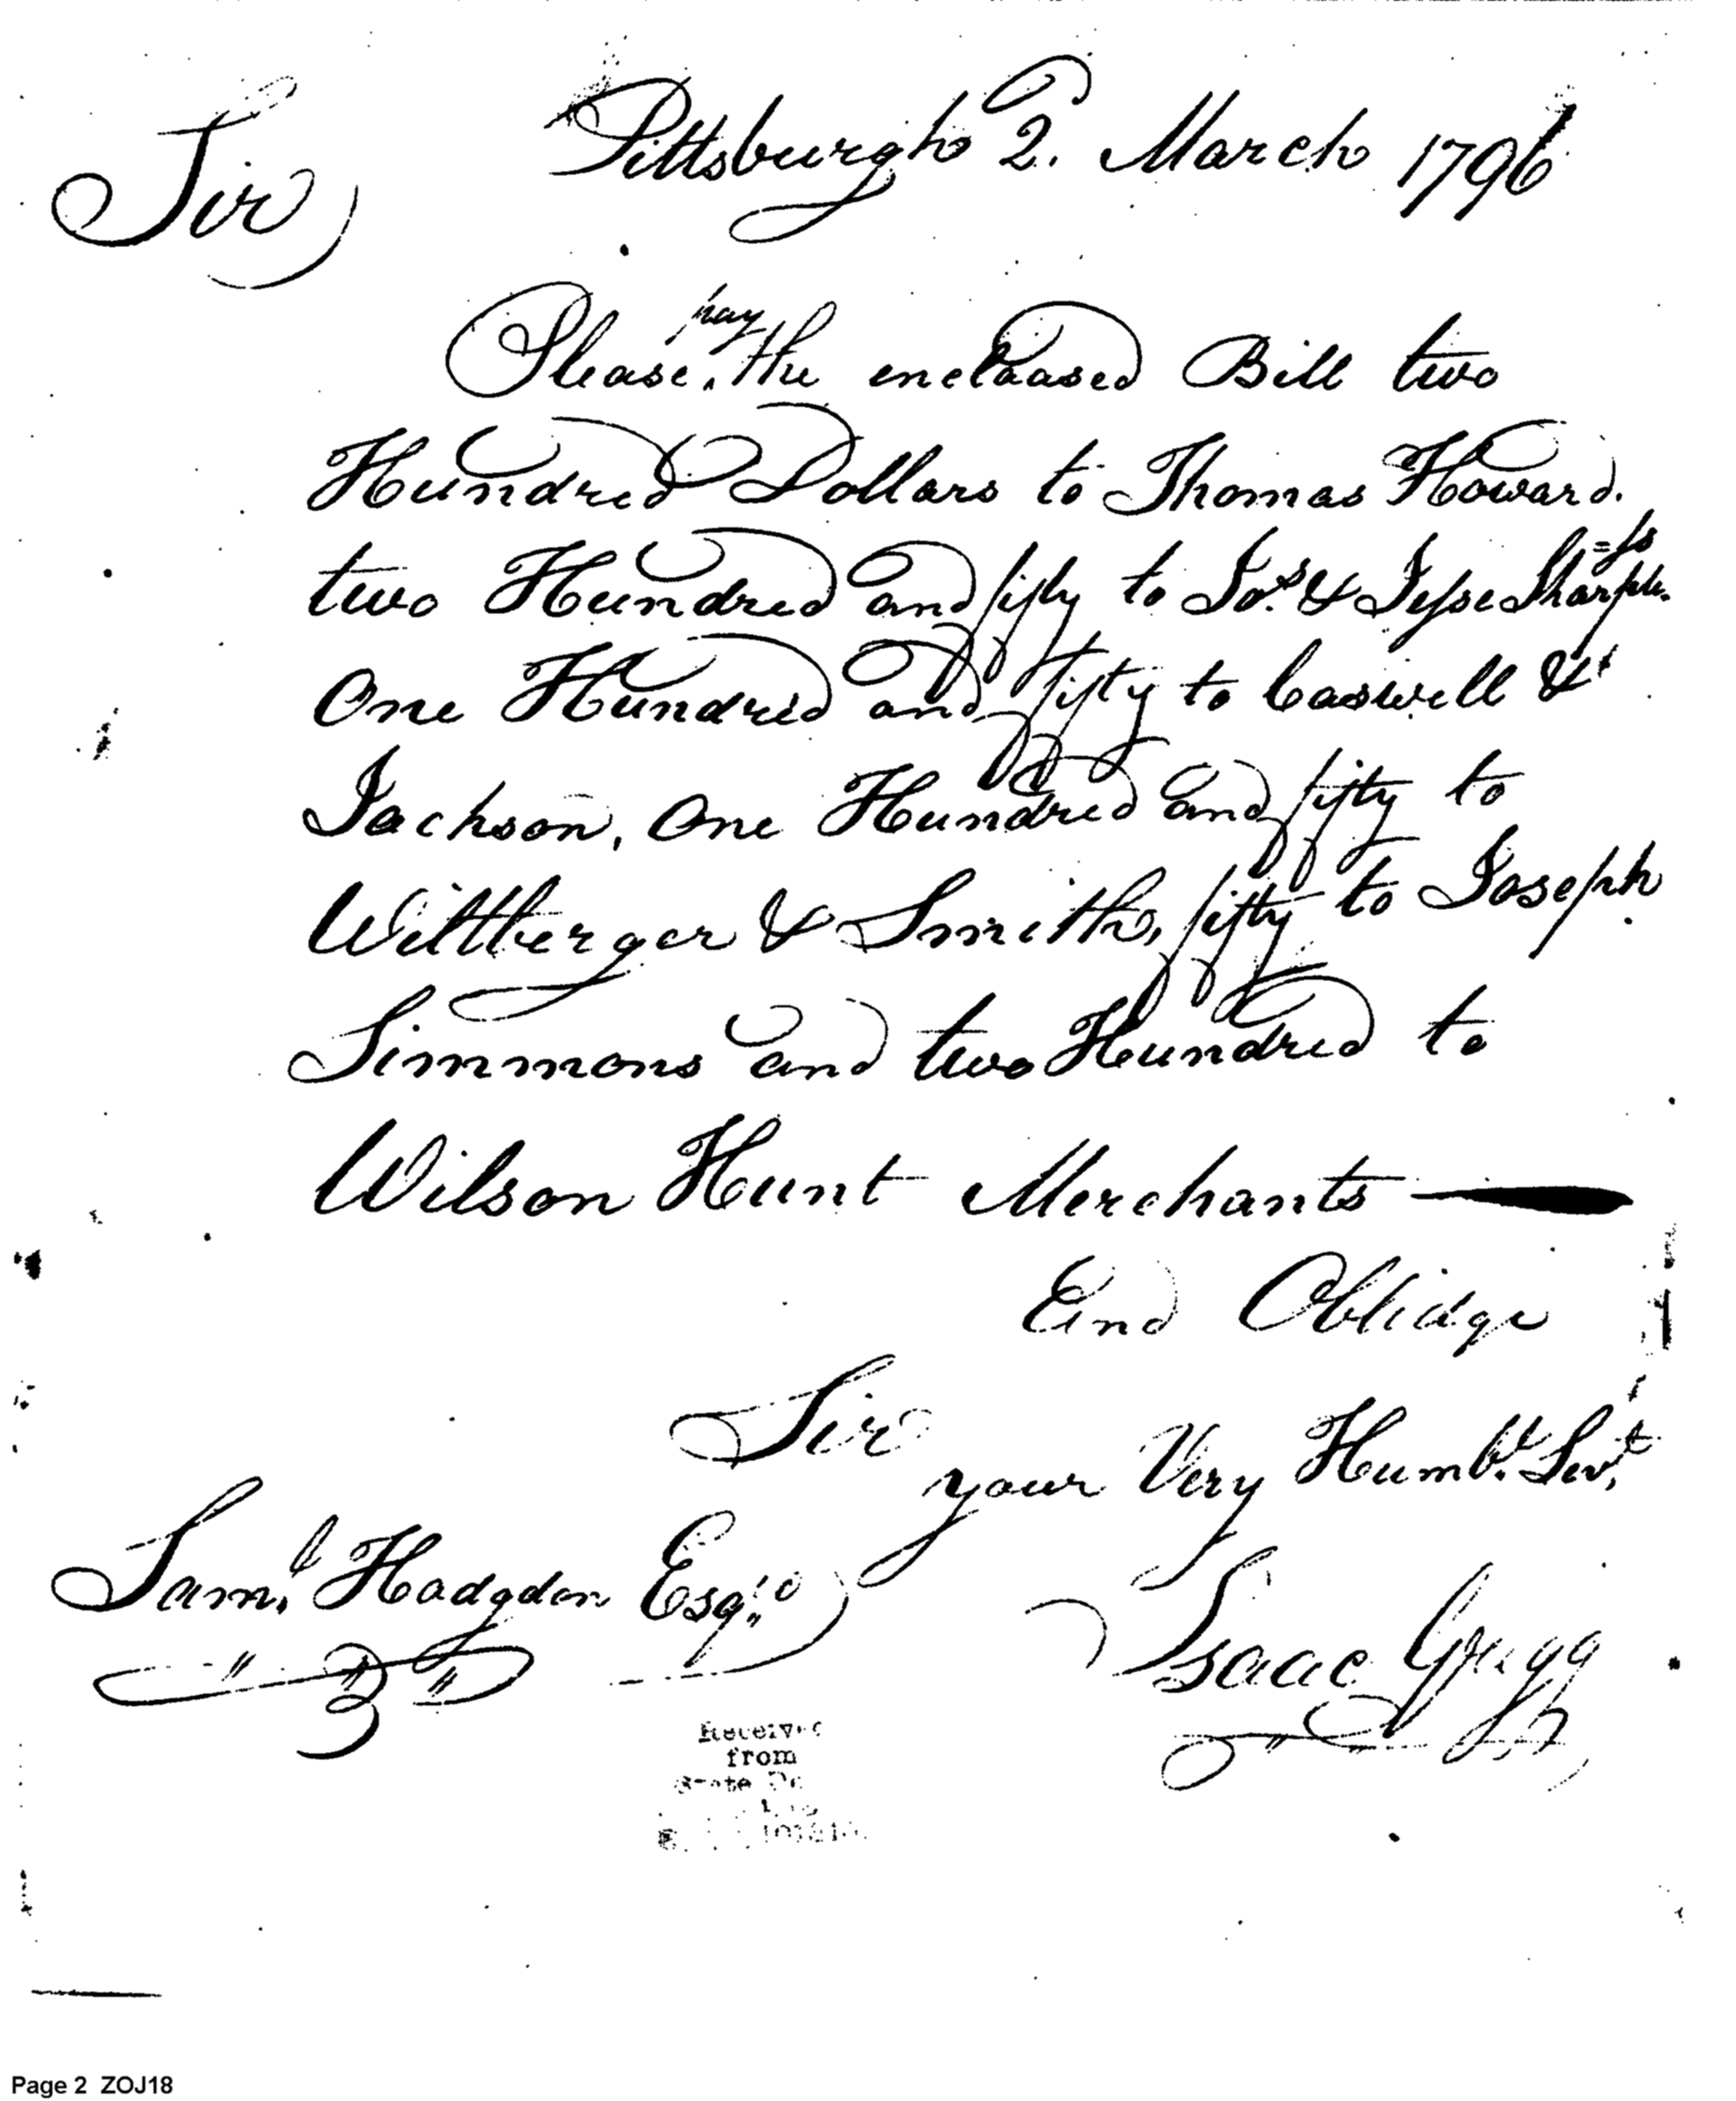 Pittsburgh 2. March 1796
Sir
Please pay the enclaased Bill two
Hundred Dollars to Thomas Howard.
two Hundred and fifty to Jos. & Jesse Sharples
One Hundred and fifty to Caswell &
Jackson, One Hundred and fifty to
Wiltberger & Smith, fifty to Joseph
Simmons and two Hundred to
Wilson Hunt Merchants
And Oblidge
Sir
your Very Humbl. Servt,
Saml. Hodgdon Esqr.
Isaac Gregg
Received
from
State
Page 2 ZOJ18